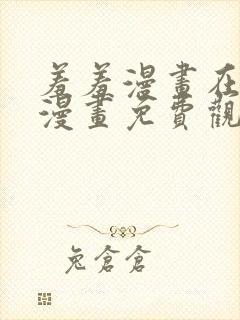 羞羞漫畫在
漫畫免費觀
兔倉倉